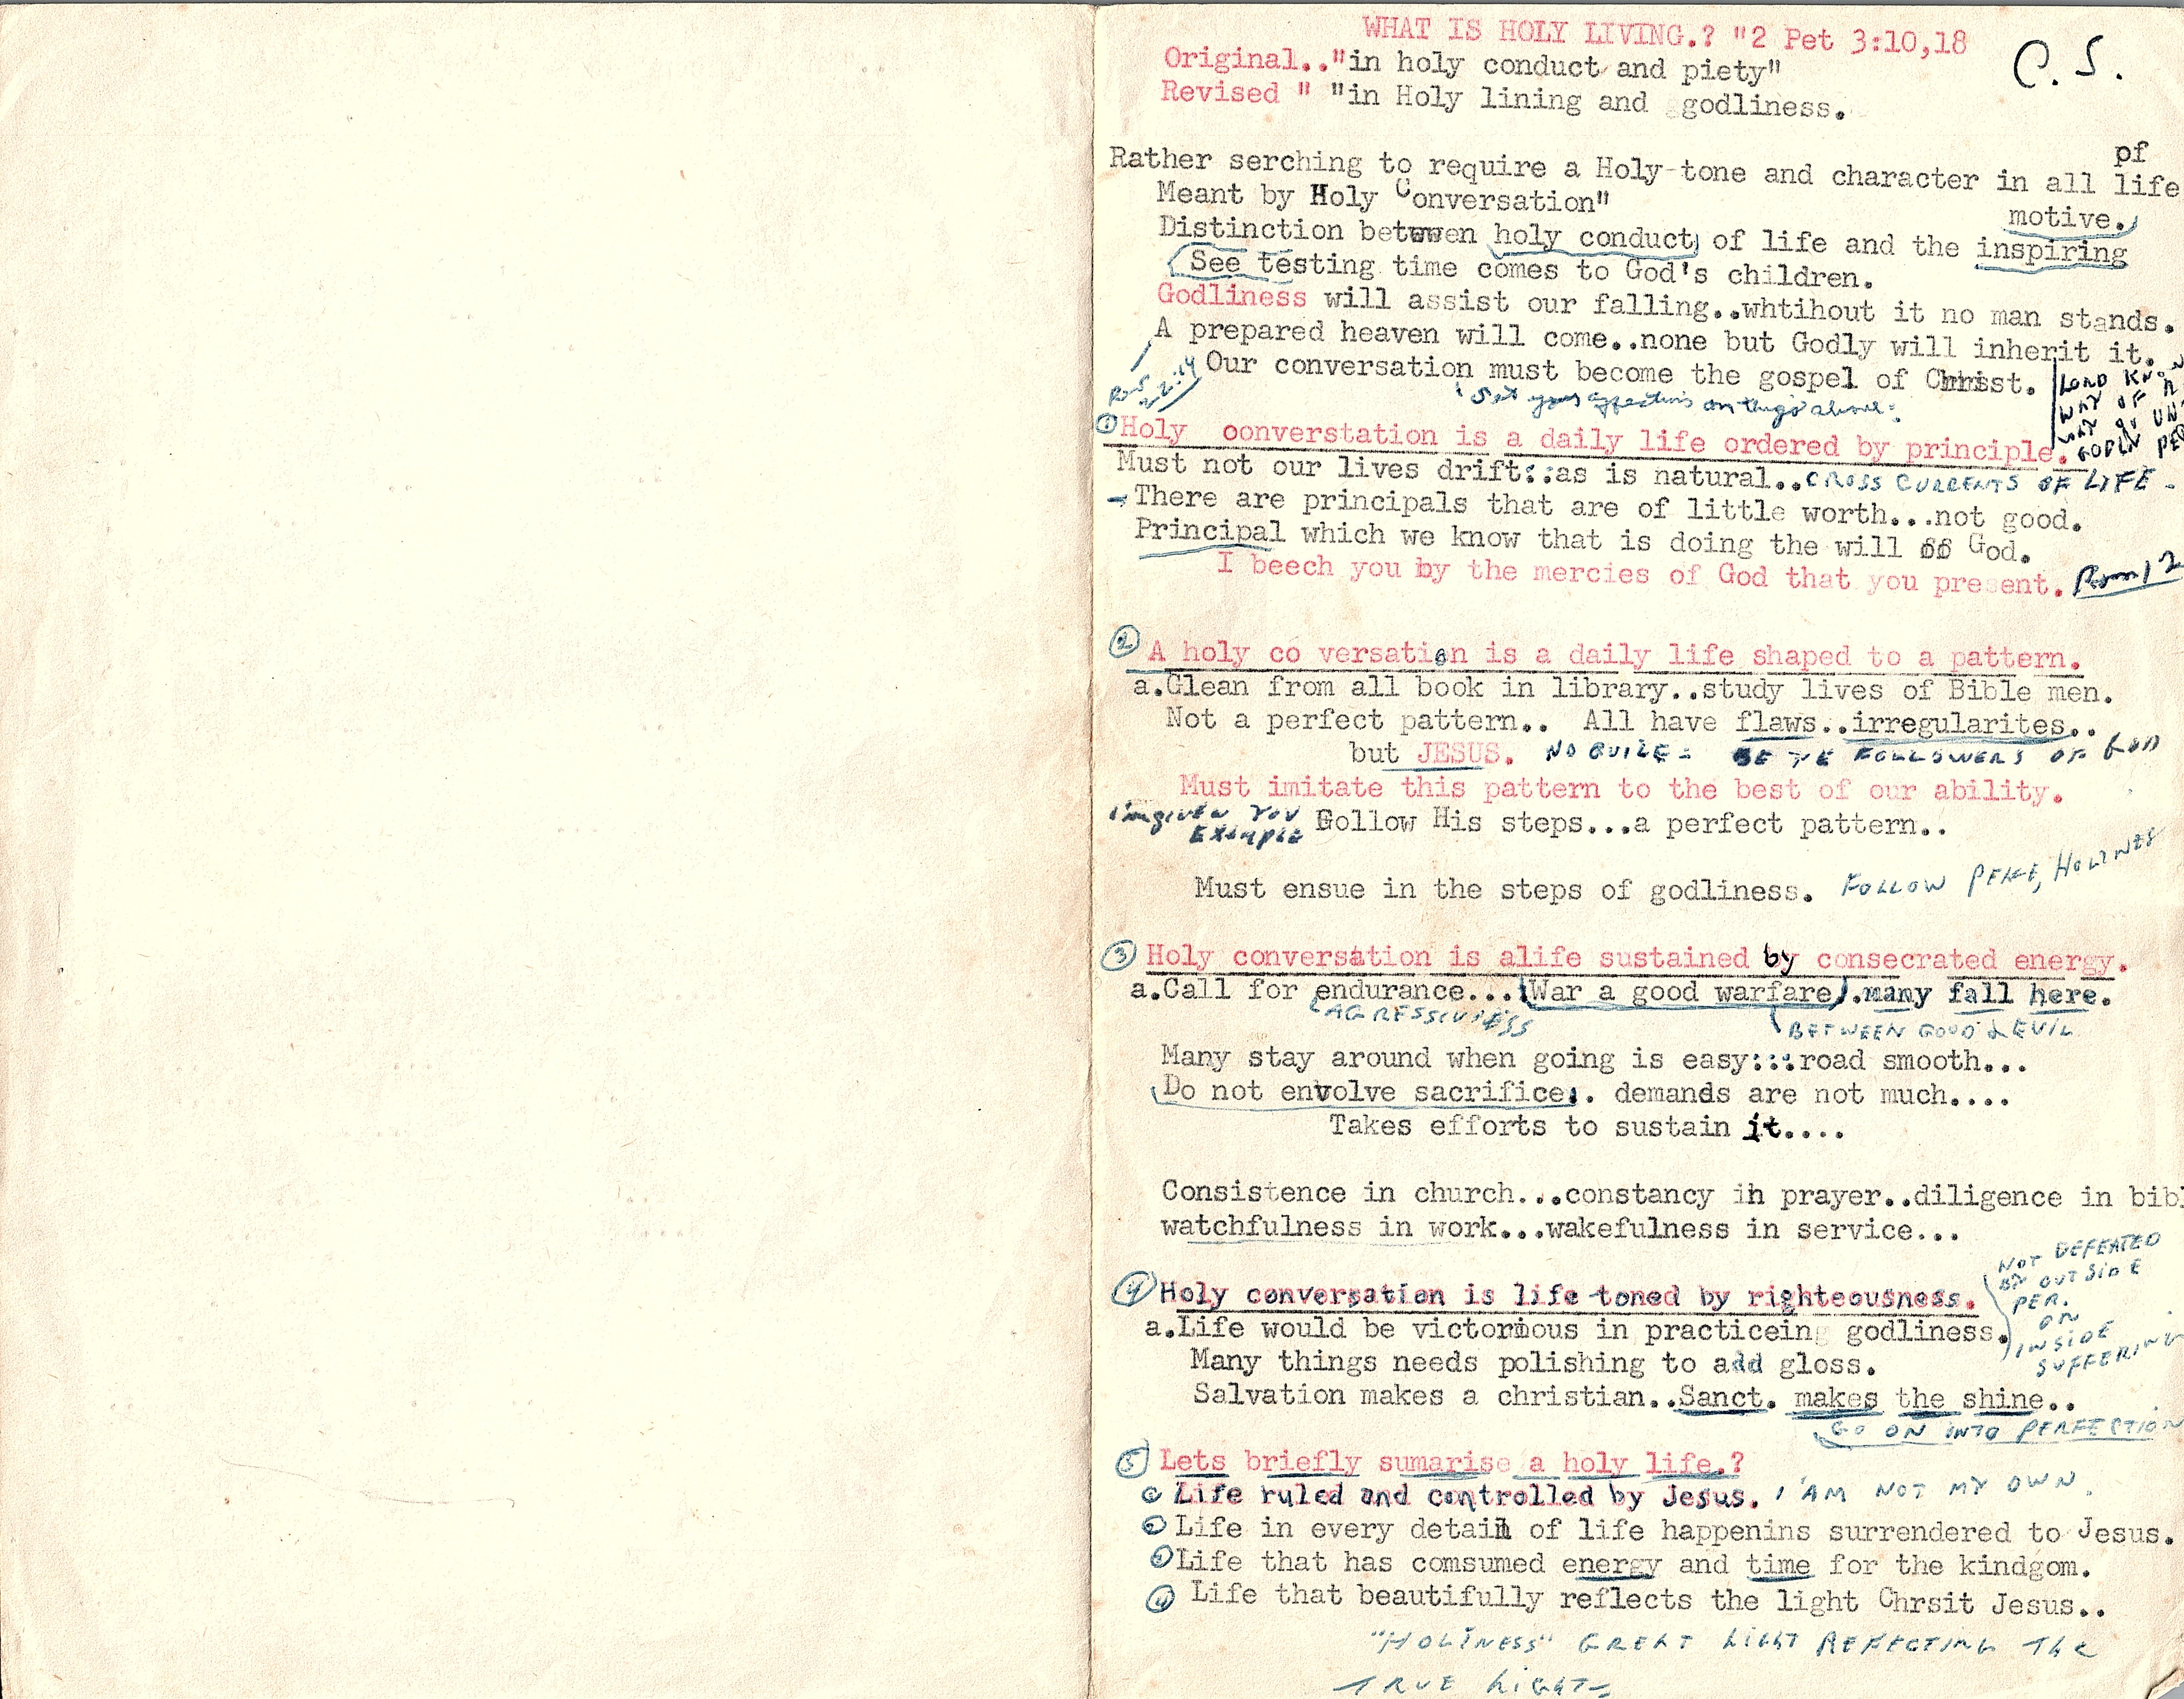 WHAT IS HOLY LIVING.? "2 Pet 3:10,18
C.S.
Original.."in holy conduct and piety"
Revised " "in Holy lining and godliness.
pf
Rather serching to require a Holy-tone and character in all life
Meant by Holy Conversation"
motive.
Distinction betwwen holy conduct of life and the inspiring
See testing time comes to God's children.
Godliness will assist our falling..whtihout it no man stands.
A prepared heaven will come..none but Godly will inherit it.
Our conversation must become the gospel of Christ.
Set your affections on things above.
LORD KNOW
WAY OF
WAY OF UN-
GODLY PE
① Holy oonverstation is a daily life ordered by principle.
Must not our lives drift::as is natural..CROSS CURRENTS OF LIFE -
There are principals that are of little worth...not good.
Principal which we know that is doing the will of God.
I beech you by the mercies of God that you present. Rom 12
② A holy co versation is a daily life shaped to a pattern.
a.Glean from all book in library..study lives of Bible men.
Not a perfect pattern.. All have flaws..irregularites..
but JESUS. NO GUILE - BE YE FOLLOWERS OF GOD
Must imitate this pattern to the best of our ability.
GIVEN YOU
EXAMPLE Follow His steps...a perfect pattern..
Must ensue in the steps of godliness. FOLLOW PEACE, HOLINESS
③ Holy conversation is alife sustained by consecrated energy.
a.Call for endurance...(War a good warfare).many fall here.
AGRESSIVNESS BETWEEN GOOD & EVIL
Many stay around when going is easy:::road smooth...
Do not envolve sacrifice.. demands are not much....
Takes efforts to sustain it....
Consistence in church...constancy in prayer..diligence in bibl
watchfulness in work...wakefulness in service...
NOT DEFEATED
BY OUTSIDE
PER.
OR
INSIDE
SUFFERING
④ Holy conversation is life toned by righteousness.
a.Life would be victorious in practiceing godliness.
Many things needs polishing to add gloss.
Salvation makes a christian..Sanct. makes the shine..
GO ON INTO PERFECTION
⑤ Lets briefly sumarise a holy life.?
① Life ruled and controlled by Jesus. I AM NOT MY OWN.
② Life in every detail of life happenins surrendered to Jesus.
③ Life that has comsumed energy and time for the kindgom.
④ Life that beautifully reflects the light Chrsit Jesus..
"HOLINESS" GREAT LIGHT REFECTING THE
TRUE LIGHT-